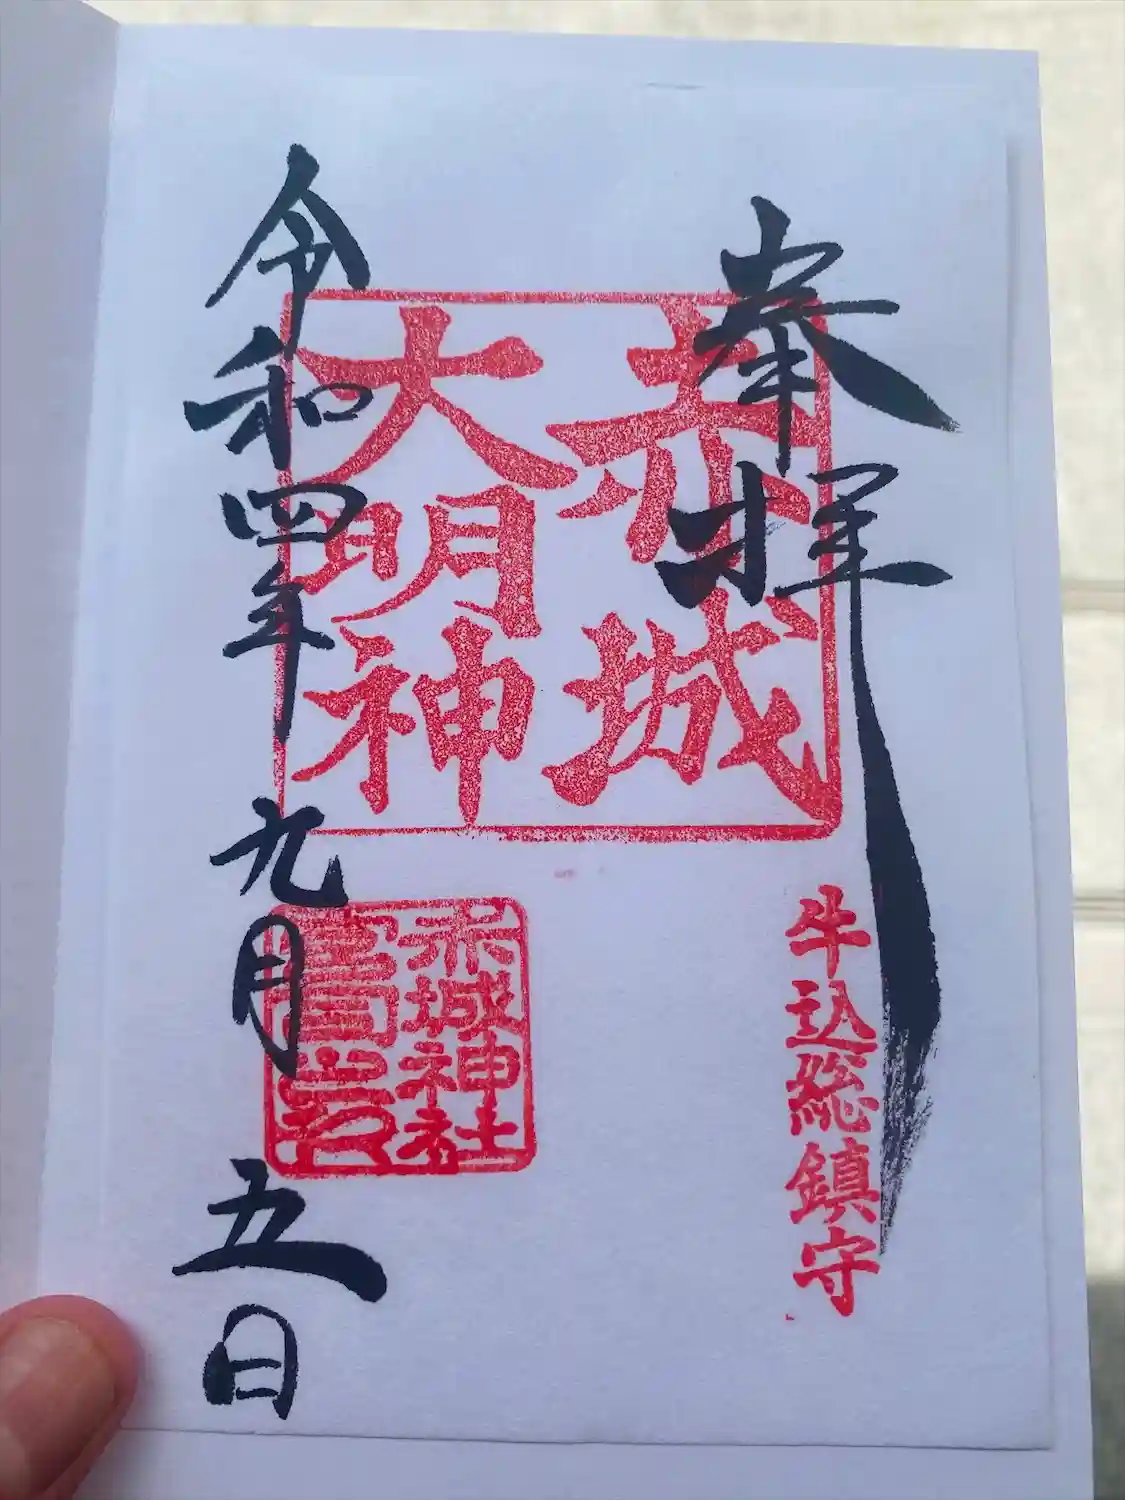 奉拝
牛込総鎮守
赤城
大明神
赤城神社
令和四年九月五日